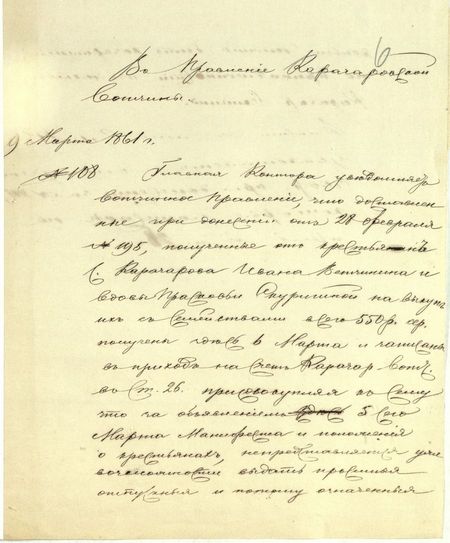 6
Въ Правленіе Карачаровской
Вотчины.
9 Марта 1861 г.
№ 108 Главная Контора увѣдомляетъ
Вотчинное Правленіе, что доставлен
ные при донесеніи отъ 28 февраля
№ 195, полученные отъ крестьянъ
С. Карачарова Ивана Ветчинина и
вдовы Прасковьи на выкупъ
ихъ съ Семействами всего 550 р. сер.
получены здѣсь 6 Марта и записаны
въ приходъ на счетъ Карачар. Вотч.
въ Ст. 26. присовокупляя къ сему
что за объявленіемъ здѣсь 5 сего
Марта Манифеста и положенія
о крестьянахъ, непредставляется уже
возможности выдать просимыя
отпускныя и потому означенныя